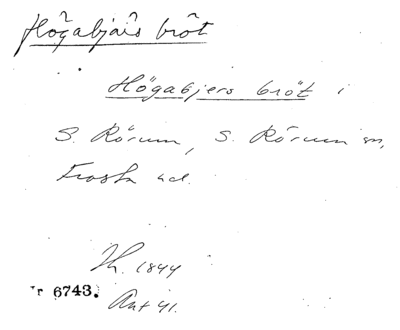 Högabjärs bröt
Högabjers bröt i
S. Rörum, S. Rörum sn,
Frosta hd.
Th. 1844
r 6743. Ant 41.